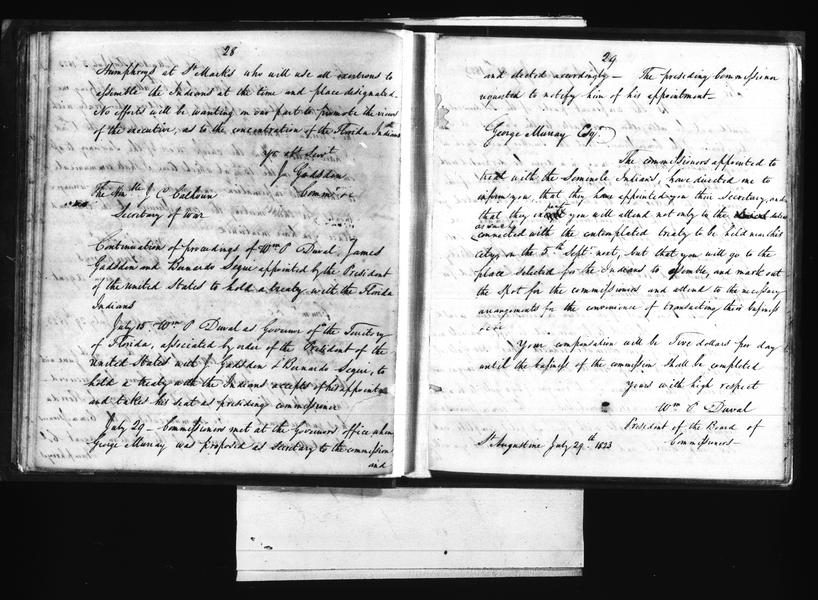 28
Humphreys at St Marks who will use all exertions to
assemble the Indians at the time and place designated.
No efforts will be wanting on our part to promote the views
of the executive, as to the concentration of the Florida Indians
yr obt Servt
J Gadsden
The Hnble J C Calhoun
Commr &c
Secretary of War
Continuation of proceedings of Wm P Duval, James
Gadsden and Bernardo Segue appointed by the President
of the United States to hold a treaty with the Florida
Indians
July 15. Wm P Duval as Governor of the Territory
of Florida, associated by order of the President of the
United States with J Gadsden & Bernardo Segue, to
hold a treaty with the Indians accepts of his appointmt
and takes his seat as presiding commissioner
July 29 - Commissioners met at the Governors office when
George Murray was proposed as secretary to the commission
and
29
and elected accordingly — The presiding Commissioner
requested to notify him of his appointment —
George Murray Esqr
The commissioners appointed to
treat with the Seminole Indians, have directed me to
inform you, that they have appointed you their Secretary, and
that they expect you will attend not only to the duties
as usually
connected with the contemplated treaty to be held near this
city, on the 5th Septr next, but that you will go to the
place selected for the Indians to assemble, and mark out
the spot for the commissioners and attend to the necessary
arrangements for the convenience of transacting their business
&c &c
Your compensation will be Five dollars per day
until the business of the commission shall be completed
Yours with high respect
Wm P Duval
President of the Board of
Commissioners —
St Augustine July 29th 1823